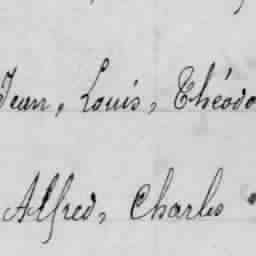 Jean, Louis, Théodo
Alfred, Charles